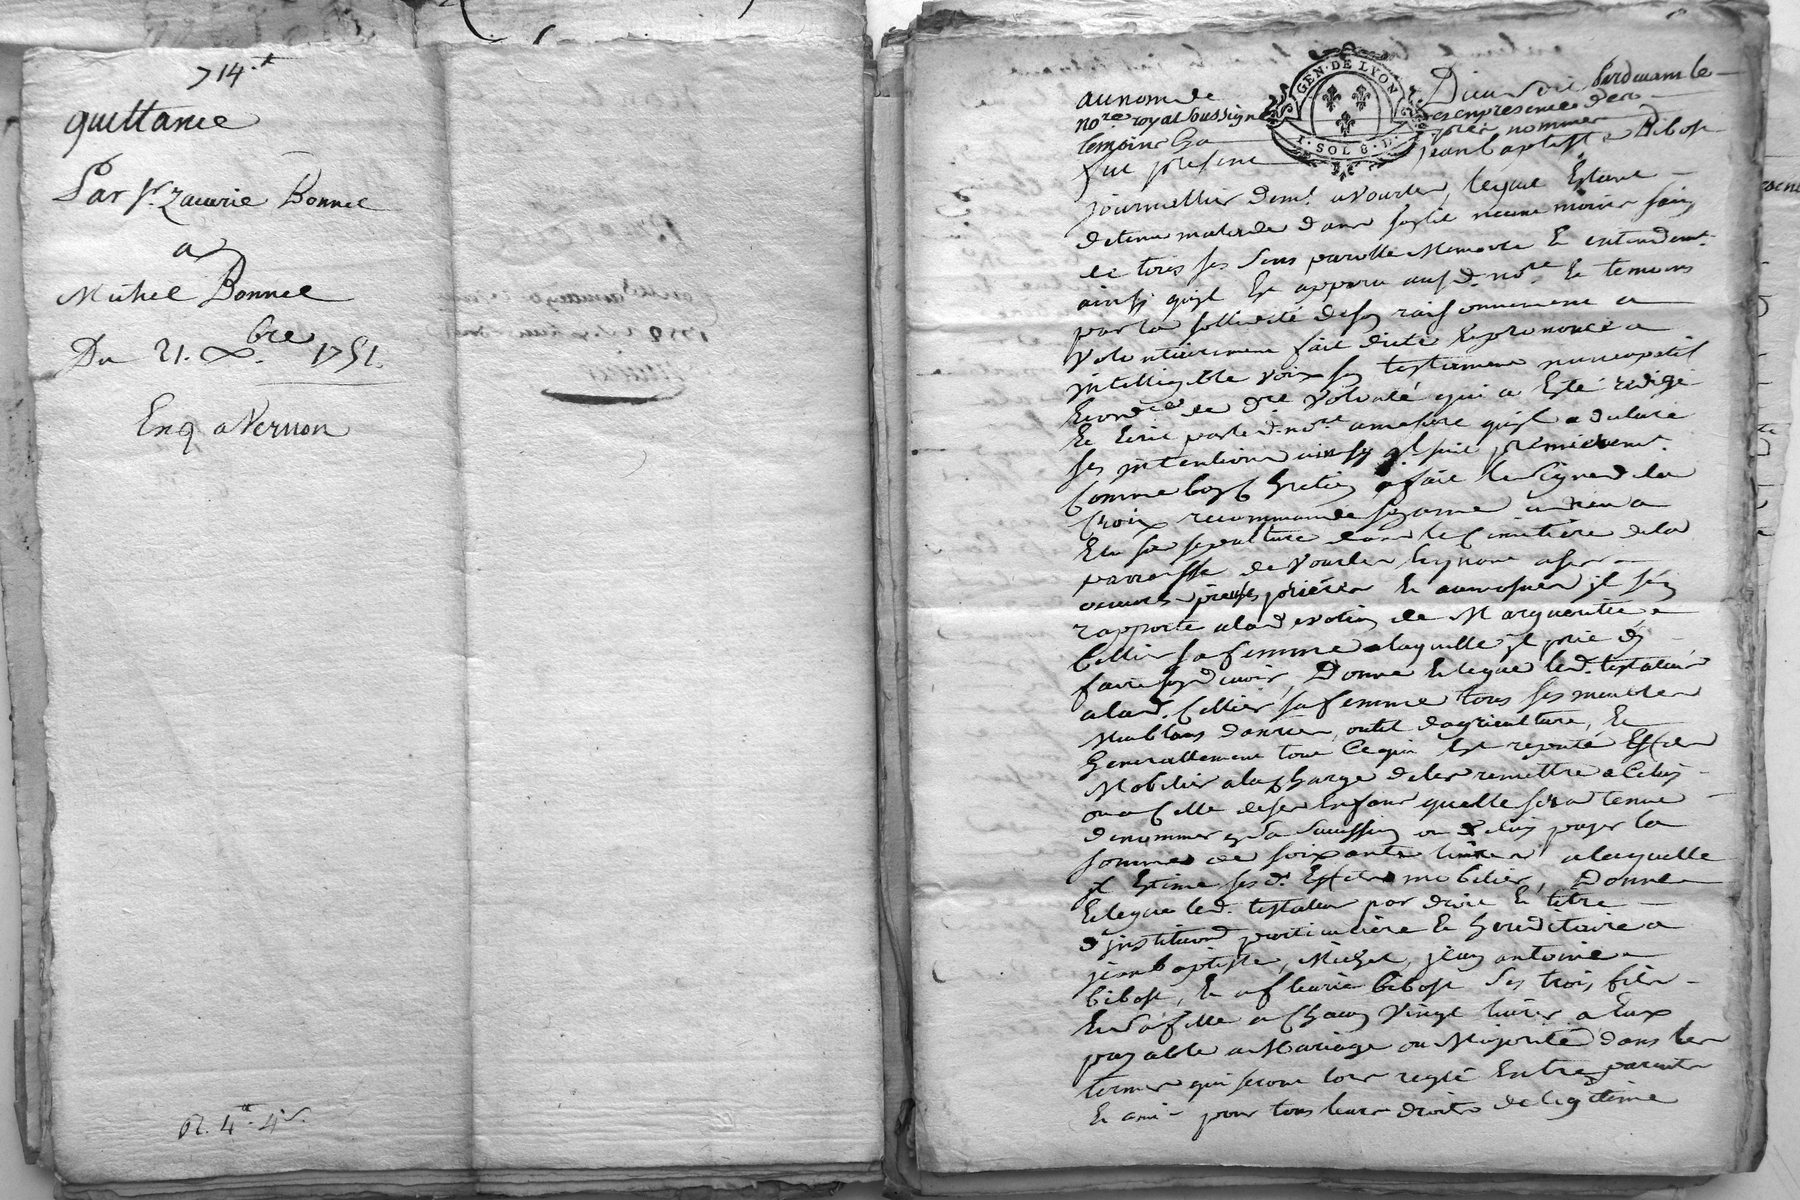 714.tt
quittance
Par Sr. Zacarie Bonnet
a
Michel Bonnet
Du 21. 8bre. 1751.
Enq a Vernon
R. 4tt. 4s.
GEN. DE LYON
I. SOL 8. D.
au nom de Dieu soit Pardevant le
nore. royal soussigné es en presence des
temoins cy apres nommes
fut present jean baptiste Bibost
journallier demt. a Vourles, lequel Estant
detenu malade dans son lit neant moins sain
de tous ses sens parolle Memoire Et entendemt.
ainsi qu'il Est apparu aud. nore. Et temoins
par la sollidité de son raisonnement a
volontairement fait dicté Et prononcé a
intelligible voix son testament nuncupatif
Et ordce. de dre. volonté qui a Esté redigé
Et Ecrit par led. nore. a mesure qu'il a declaré
ses intentions ainsy qu'il suit premierement
Comme bon Chretien a fait le signe de la
Croix recommandé son ame a dieu a
Elu sa sepulture dans le Cimetiere de la
parroisse de Vourles, Et quant a ses
oeuvres pieuses prieres Et aumosnes il s'en
rapporte a la devotion de Margueritte
Cellier sa femme a laquelle il prie d'en
faire son devoir, Donne Et legue led. testateur
a lad. Cellier sa femme tous ses meubles
Meublans danrées, outil d'agriculture, Et
Generallement tout Ce qui Est reputé Effets
Mobilier a la Charge de les remettre a Celuy
ou a Celle de ses Enfans quelle sera tenue
de nommer a sa sucession ou de luy payer la
somme de soixante livres a laquelle
il Estime ses d. Effets mobilier, Donne
Et legue led. testateur par droit Et titre
d'institution particuliere Et hereditaire a
jean baptiste, Michel, jean antoine
bibost, Et a fleurie bibost ses trois fils
Et sa fille a Chacun Vingt livres a Eux
payable a Mariage ou Majorité dans les
termes qui seront lors reglé Entre parents
Et ami pour tous leurs droits de legitime